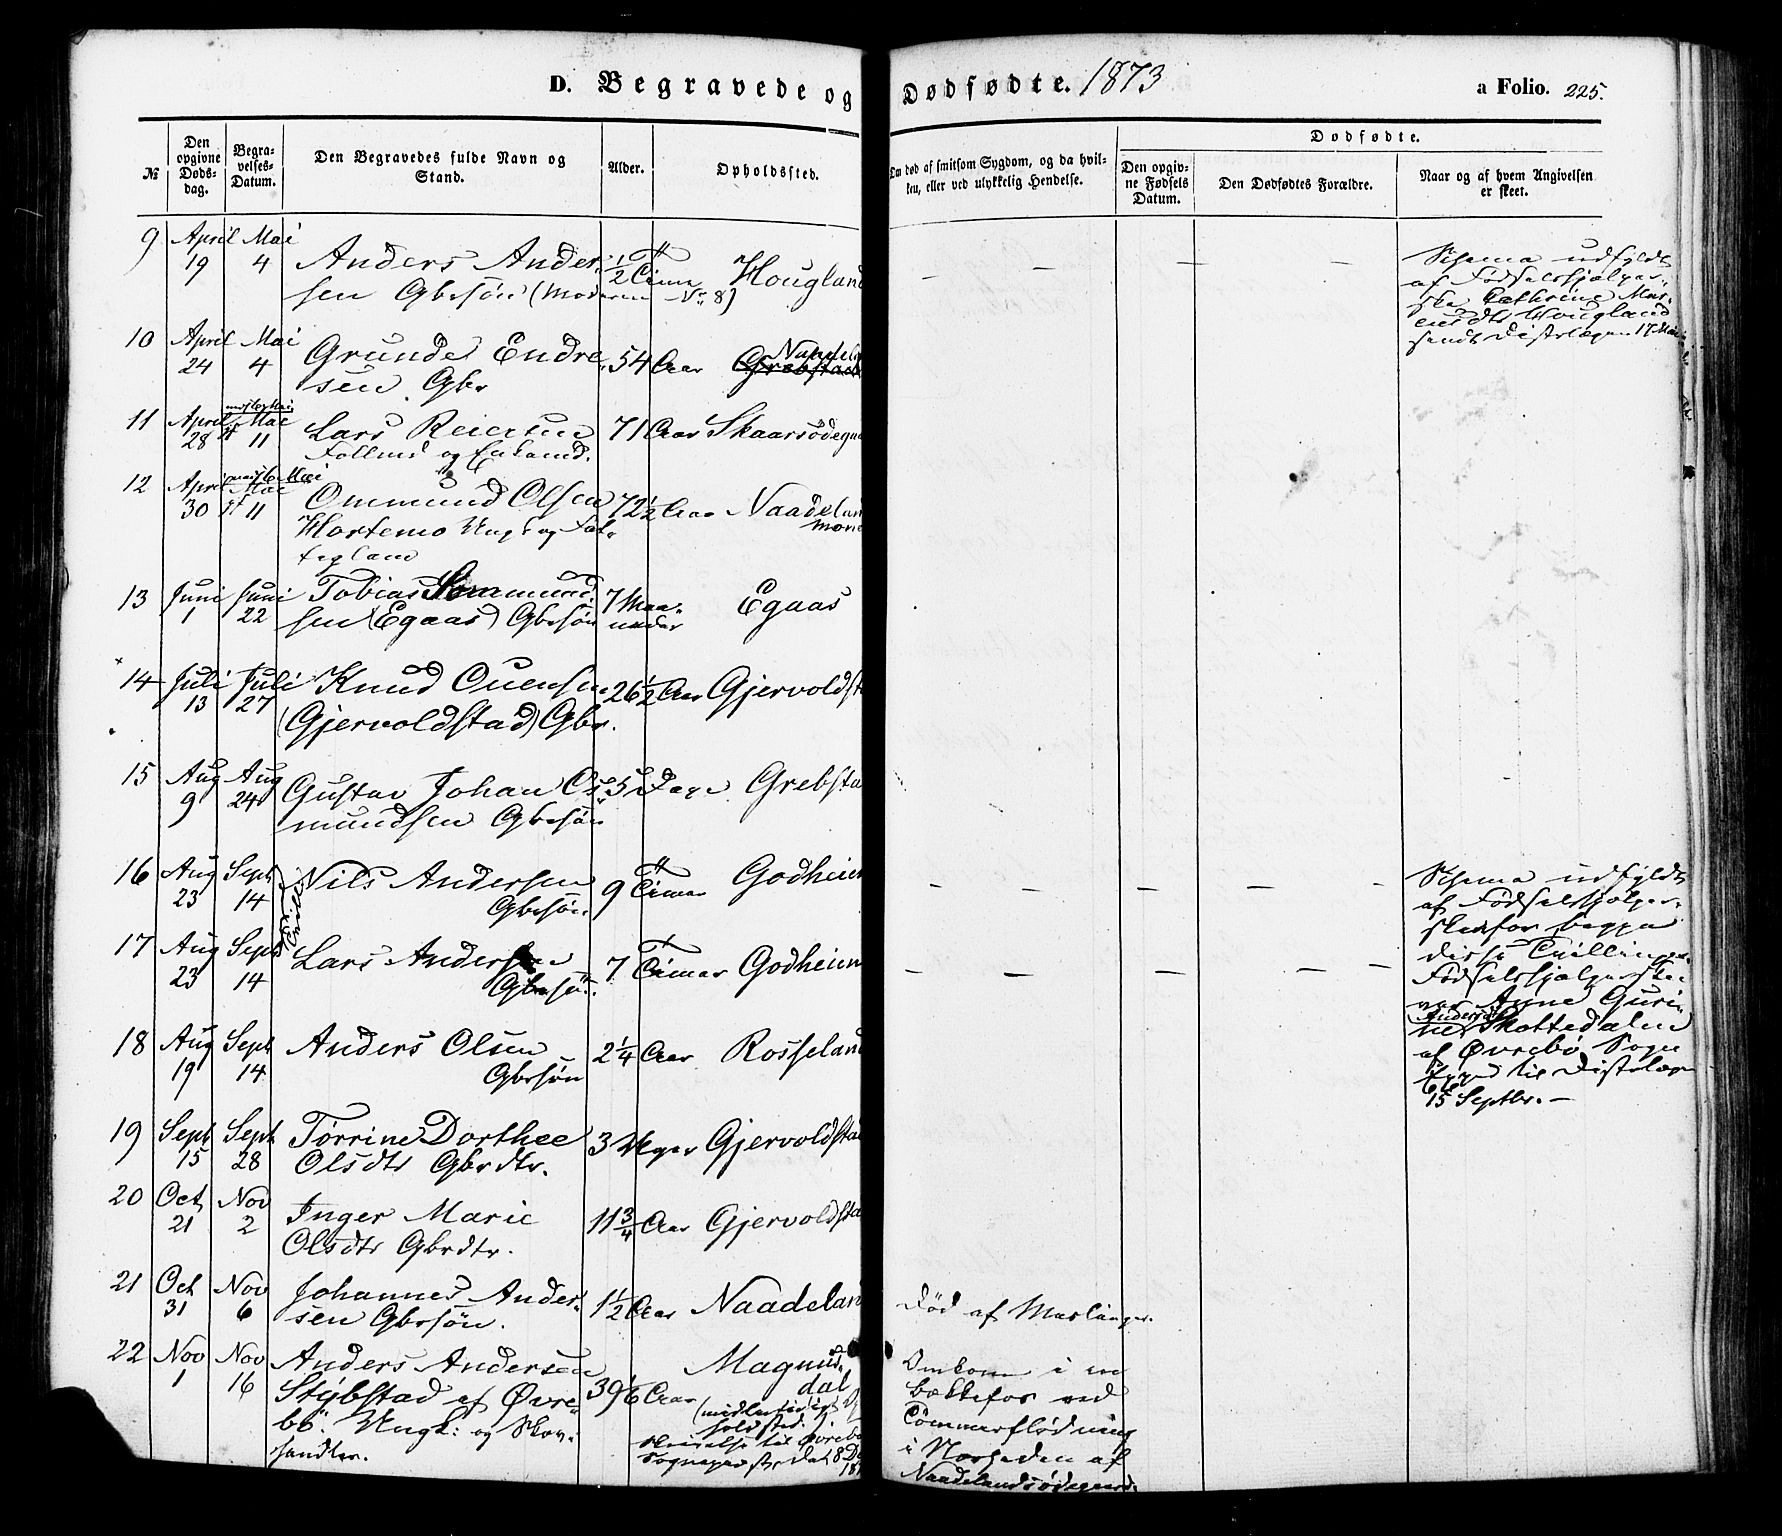 D. Begravede og Dødfødte. 1873
a Folio. 225.
№
Den opgivne Døds-dag.
Begra-velses-Datum.
Den Begravedes fulde Navn og Stand.
Alder.
Opholdssted.
Om død af smitsom Sygdom, og da hvil-ken, eller ved ulykkelig Hendelse.
Dødfødte.
Den opgiv-ne Fødsels Datum.
Den Dødfødtes Forældre.
Naar og af hvem Angivelsen er skeet.
9 April 19 Mai 4 Anders Ander-
sen Gbrsøn (Moderen No 8) 1/2 Time Hougland
Schema udfyldt
af Fødselshjælper-
ske Cathrine
Hougland
sendt Distrlægen 17 Mai
10 April 24 Mai 4 Grunde Endre-
sen Gbr 54 Aar Grebstad
11 April 28 Mai 11 Lars Reiersen
og Enkemd. 71 Aar Skaarsødegaa
12 April 30 Mai 11 Ommund Olsen
Hortemo Ungk og Fat-
tiglem 72 1/2 Aar Naadelan
13 Juni 1 Juni 22 Tobias Sommund
sen (Egaas) Gbrsøn 7 Maa-
neder Egaas
14 Juli 13 Juli 27 Knud Ouensen
(Gjervoldstad) Gbr. 26 1/2 Aar Gjervoldst
15 Aug 9 Aug 24 Gustav Johan Os-
mundsen Gbrsøn 5 Dage Grebsta
16 Aug 23 Sept 14 Nils Andersen
Gbrsøn. 9 Timer Godheien
17 Aug 23 Sept 14 Lars Andersen
Gbrsøn. 7 Timer Godheien
Schema udfyldt
af Fødselshjælper-
sken for begge
disse Tvillinger
Fødselshjælpersken
var Anne Guri-
ne Andersdtr Skottedalen
af Øvrebø Sogn
til Distrlægen
15 Septbr. —
18 Aug 19 Sept 14 Anders Olsen
Gbrsøn 2 1/4 Aar Rosseland
19 Sept 15 Sept 28 Tørrine Dorthee
Olsdtr Gbrdtr. 3 Uger Gjervoldsta
20 Oct 21 Nov 2 Inger Marie
Olsdtr Gbrdtr. 11 3/4 Aar Gjervoldsta
21 Oct 31 Nov 6 Johannes Ander-
sen Gbrsøn. 1 1/2 Aar Naadelan
Død af Meslinger.
22 Nov 1 Nov 16 Anders Andersen
Stybstad af Øvre-
bø. Ungk: og Skov-
handler. 39 1/6 Aar Magnus
dal
(midlertidigt Op
holdssted.)
til Øvrebø
Sognepr
Omkom i en
Bækkefos ved
Tømmerflødning
i Nærheden af
Naadelandsødegaard.